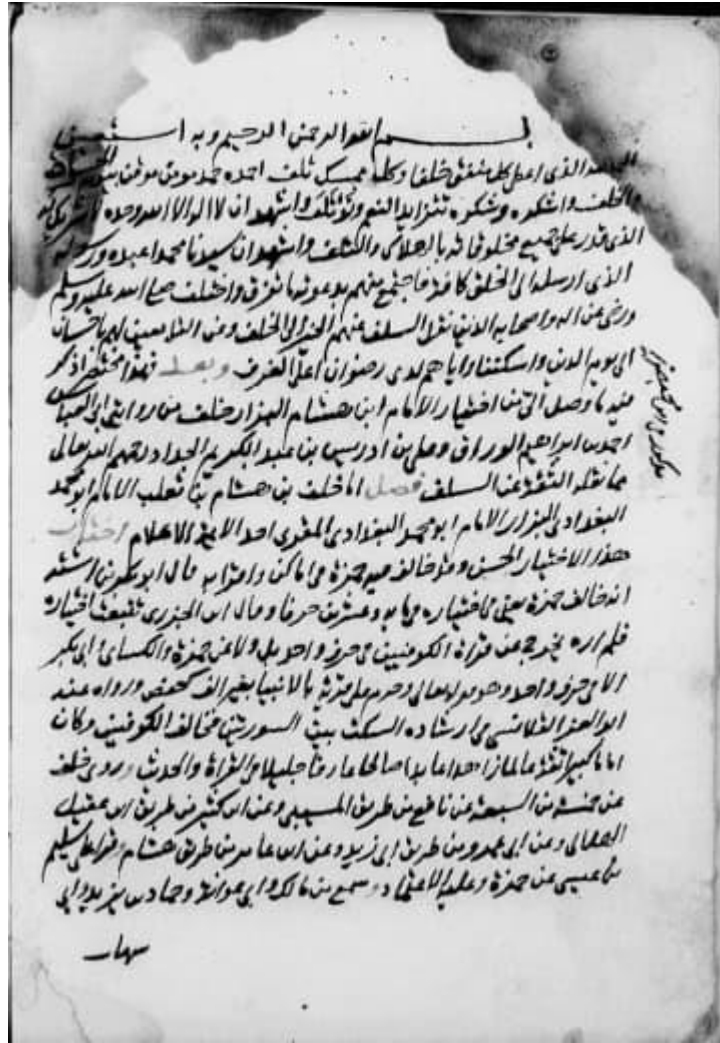 بسم الله الرحمن الرحيم وبه استعين
الحمد لله الذي اعطى كل منفق خلفا وكل ممسك تلف احمده حمد مومن موقن بيوم الحساب
والخلف واشكره وشكره تتزايد النعم وتؤتلف واشهد ان لا اله الا الله وحده لا شريك له
الذي قدر على جميع مخلوقاته بالهلاك والتلف واشهد ان سيدنا محمدا عبده ورسوله
الذي ارسله الى الخلق كافة فاجتمع منهم بدعوته ما تفرق واختلف صلى الله عليه وسلم
ورضى عن اله واصحابه الذين نقل السلف عنهم الخبر الى الخلف وعن التابعين لهم باحسان
الى يوم الدين واسكننا واياهم لدى رضوان اعلى الغرف وبعد فهذا مختصر اذكر
فيه ما وصل الى من اختيار الامام ابن هشام البزار خلف من روايتي ابي العباس
احمد بن ابراهيم الوراق وعلى بن ادريس بن عبد الكريم الحداد رحمهم الله تعالى
مما نقله الثقة عن السلف فصل اما خلف بن هشام بن ثعلب الامام ابو محمد
البغدادى البزار الامام ابو محمد البغدادى المقرى احد الايمة الاعلام اختار
هذا الاختيار الحسن وقد خالف فيه حمزة فى اماكن واقرا به قال ابو بكر بن اشته
انه خالف حمزة يعنى فى اختياره فى مايه وعشرين حرفا وقال ابن الجزرى تتبعت اختياره
فلم اره يخرج عن قراة الكوفيين فى حرف واحد بل ولا عن حمزة والكساى وابى بكر
الا فى حرف واحد وهو قوله تعالى وحرم على قرية بالانبيا بغير الف كحفص ورواه عنه
ابو العز القلانسى فى ارشاده السكت بين السورتين فخالف الكوفيين وكان
اماما كبيرا ثقة عالما زاهدا عابدا صالحا عارفا جليلا فى القراة والحدث وروى خلف
عن خمسة من السبعة عن نافع من طريق المسيبى وعن ابن كثير من طريق ابن عقيل
الهلالى وعن ابى عمرو من طريق ابى زيد وعن ابن عامر من طريق هشام وقرا على سليم
بن عيسى عن حمزة وعليه الاعتماد وسمع من مالك وابى عوانة وحماد بن زيد وابى
شهاب